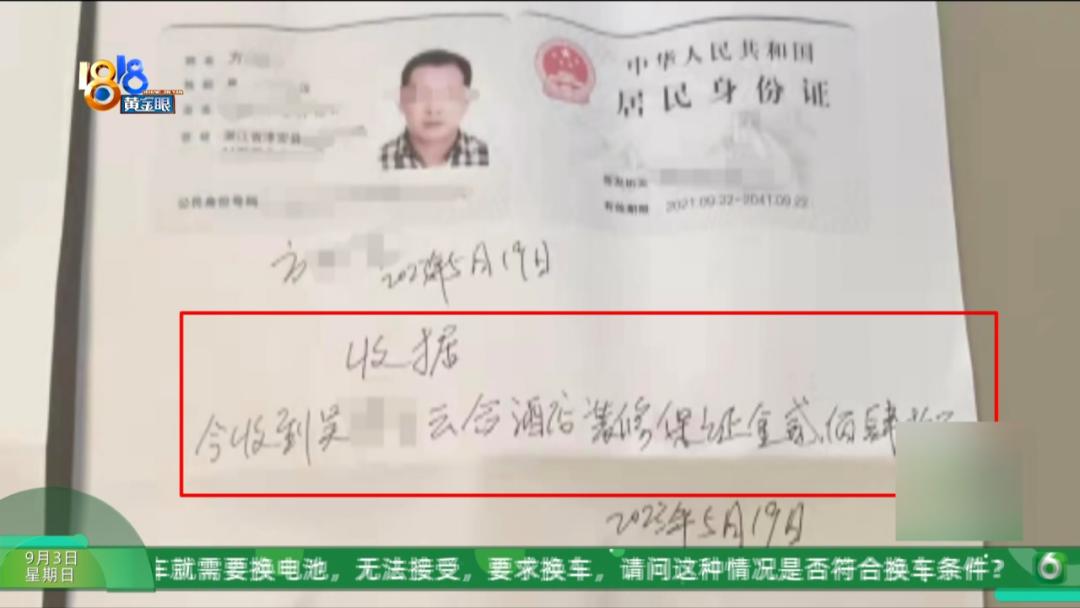 1818
黄金眼
姓名 方
浙江省淳安县
公民身份号码
中华人民共和国
居民身份证
签发机关
有效期限 2021.09.22-2041.09.22
方 2023年5月19日
收据
今收到吴 云合酒店装修保证金贰佰肆拾
2023年5月19日
9月3日
星期日
车就需要换电池，无法接受，要求换车，请问这种情况是否符合换车条件？
6